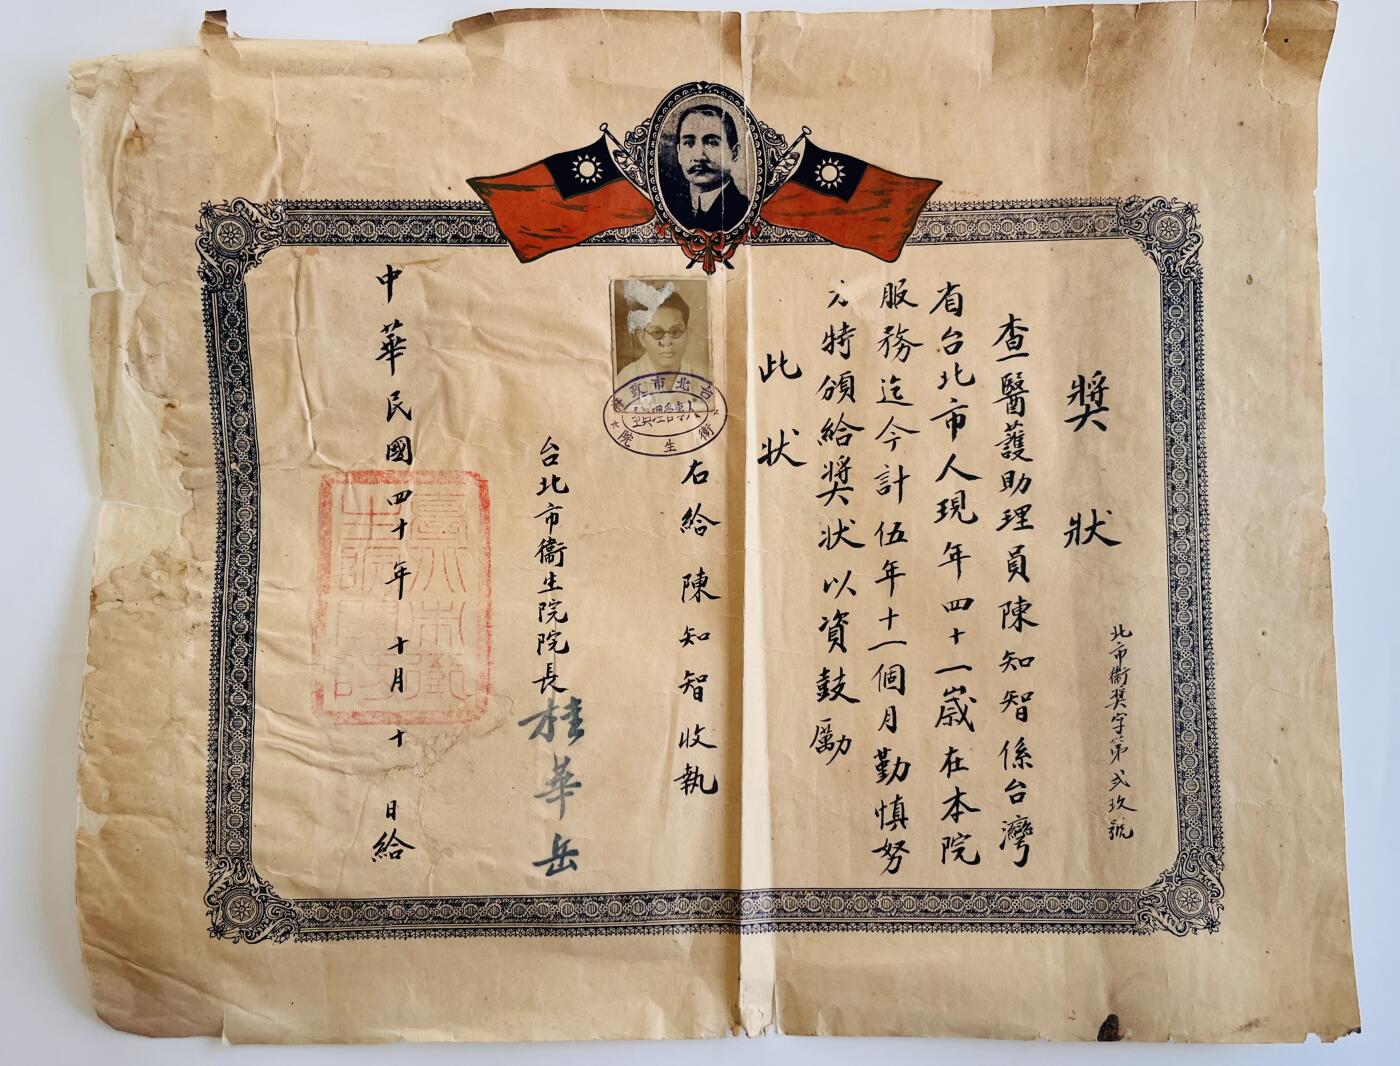 獎狀
北市衞獎字第弍玖號
查醫護助理員陳知智係台灣
省台北市人現年四十一歲在本院
服務迄今計伍年十一個月勤慎努
力特頒給獎狀以資鼓勵
此狀
右給陳知智收執
台北市政府
衛生院
台北市衞生院院長桂華岳
中華民國四十年十月十日給